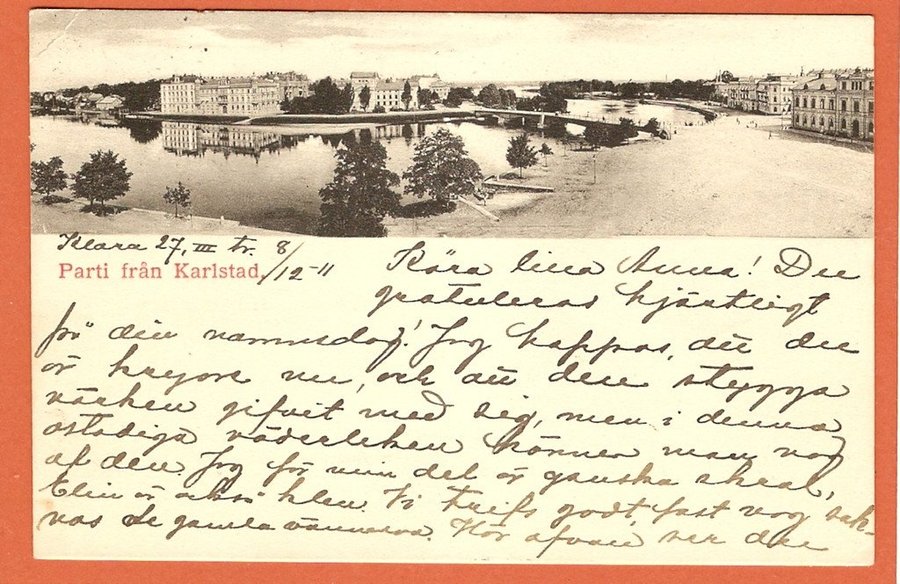 Klara 27, III tr. 8/12-11
Parti från Karlstad.
Kära lilla Anna! Du
gratuleras hjärtligt
för din namnsdag! Jag hoppas, att du
är kryare nu, och att den stygga
värken gifvit med sig, men i denna
ostadiga väderleken känner man nog
af den. Jag för min del är ganska
Elin är också klen. Vi trifs godt, fast nog sak-
nas de gamla vännerna. Här ofvan ser du